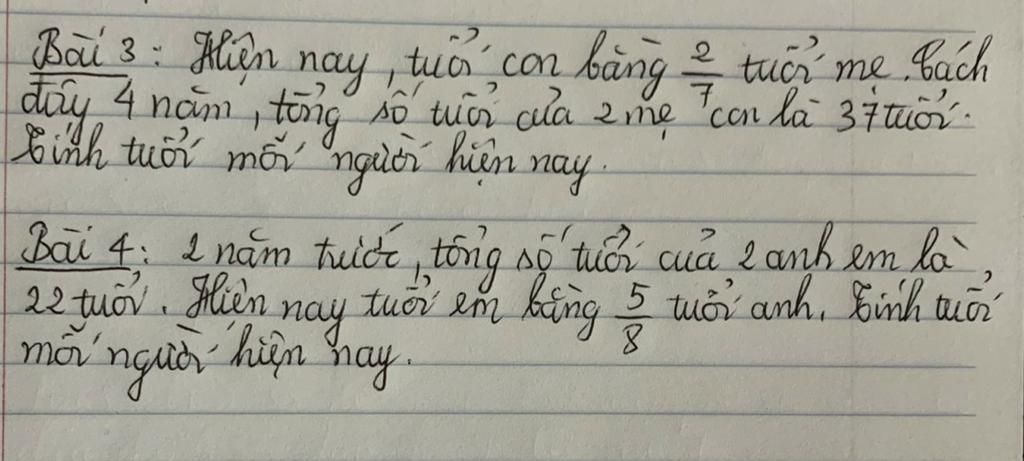 Bài 3: Hiện nay, tuổi con bằng 2/7 tuổi mẹ. Cách
đây 4 năm, tổng số tuổi của 2 mẹ con là 37 tuổi.
Tính tuổi mỗi người hiện nay.
Bài 4: 2 năm trước, tổng số tuổi của 2 anh em là
22 tuổi. Hiện nay tuổi em bằng 5/8 tuổi anh. Tính tuổi
mỗi người hiện nay.